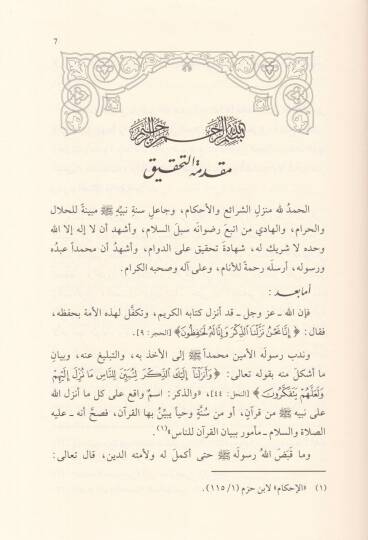 ٧
بسم الله الرحمن الرحيم
مقدمة التحقيق
الحمدُ لله منزلِ الشرائع والأحكام، وجاعلِ سنةِ نبيِّه ﷺ مبينةً للحلال
والحرام، والهادي من اتبعَ رضوانَه سبلَ السلام، وأشهد أن لا إله إلا الله
وحده لا شريك له، شهادةَ تحقيق على الدوام، وأشهدُ أن محمداً عبدُه
ورسوله، أرسلَه رحمةً للأنام، وعلى آله وصحبه الكرام.
أما بعد :
فإن الله ـ عز وجل ـ قد أنزل كتابه الكريم، وتكفَّل لهذه الأمة بحفظه،
فقال : ﴿إِنَّا نَحْنُ نَزَّلْنَا الذِّكْرَ وَإِنَّا لَهُ لَحَافِظُونَ﴾ [الحجر: ٩].
وندب رسولَه الأمين محمداً ﷺ إلى الأخذ به، والتبليغ عنه، وبيانِ
ما أشكلَ منه بقوله تعالى: ﴿وَأَنزَلْنَا إِلَيْكَ الذِّكْرَ لِتُبَيِّنَ لِلنَّاسِ مَا نُزِّلَ إِلَيْهِمْ
وَلَعَلَّهُمْ يَتَفَكَّرُونَ﴾ [النحل: ٤٤]، «والذكر: اسمٌ واقع على كل ما أنزل الله
على نبيه ﷺ من قرآنٍ، أو من سُنَّةٍ وحياً يبيِّنُ بها القرآن، فصحَّ أنه ـ عليه
الصلاة والسلام ـ مأمور ببيان القرآن للناس»(١)
وما قَبَضَ اللهُ رسولَه ﷺ حتى أكملَ له ولأمته الدين، قال تعالى:
(١) «الإحكام» لابن حزم (١/ ١١٥).